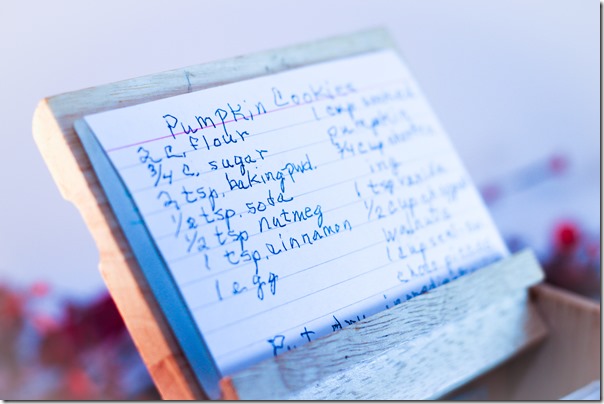 Pumpkin Cookies
2 c. flour
3/4 c. sugar
2 tsp. baking pwd.
1/2 tsp. soda
1/2 tsp nutmeg
1 tsp. cinnamon
1 egg
1 cup
pumpkin
3/4 cup
ing
1 tsp
1/2 cup
walnuts
1 cup
choc
Put dry